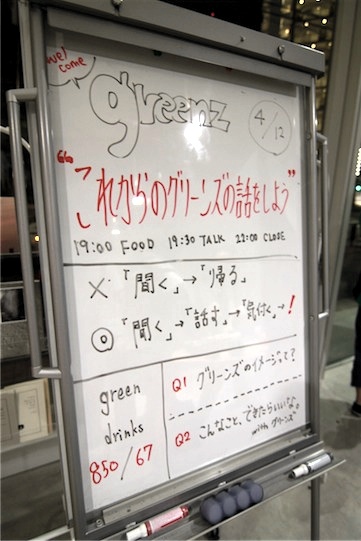 wel come
greenz
4/12
“これからのグリーンズの話をしよう”
19:00 FOOD 19:30 TALK 22:00 CLOSE
×「聞く」→「帰る」
◎「聞く」→「話す」→「気付く」→!
green
drinks
850/67
Q1 グリーンズのイメージって?
Q2 こんなこと、できたらいいな。
with グリーンズ